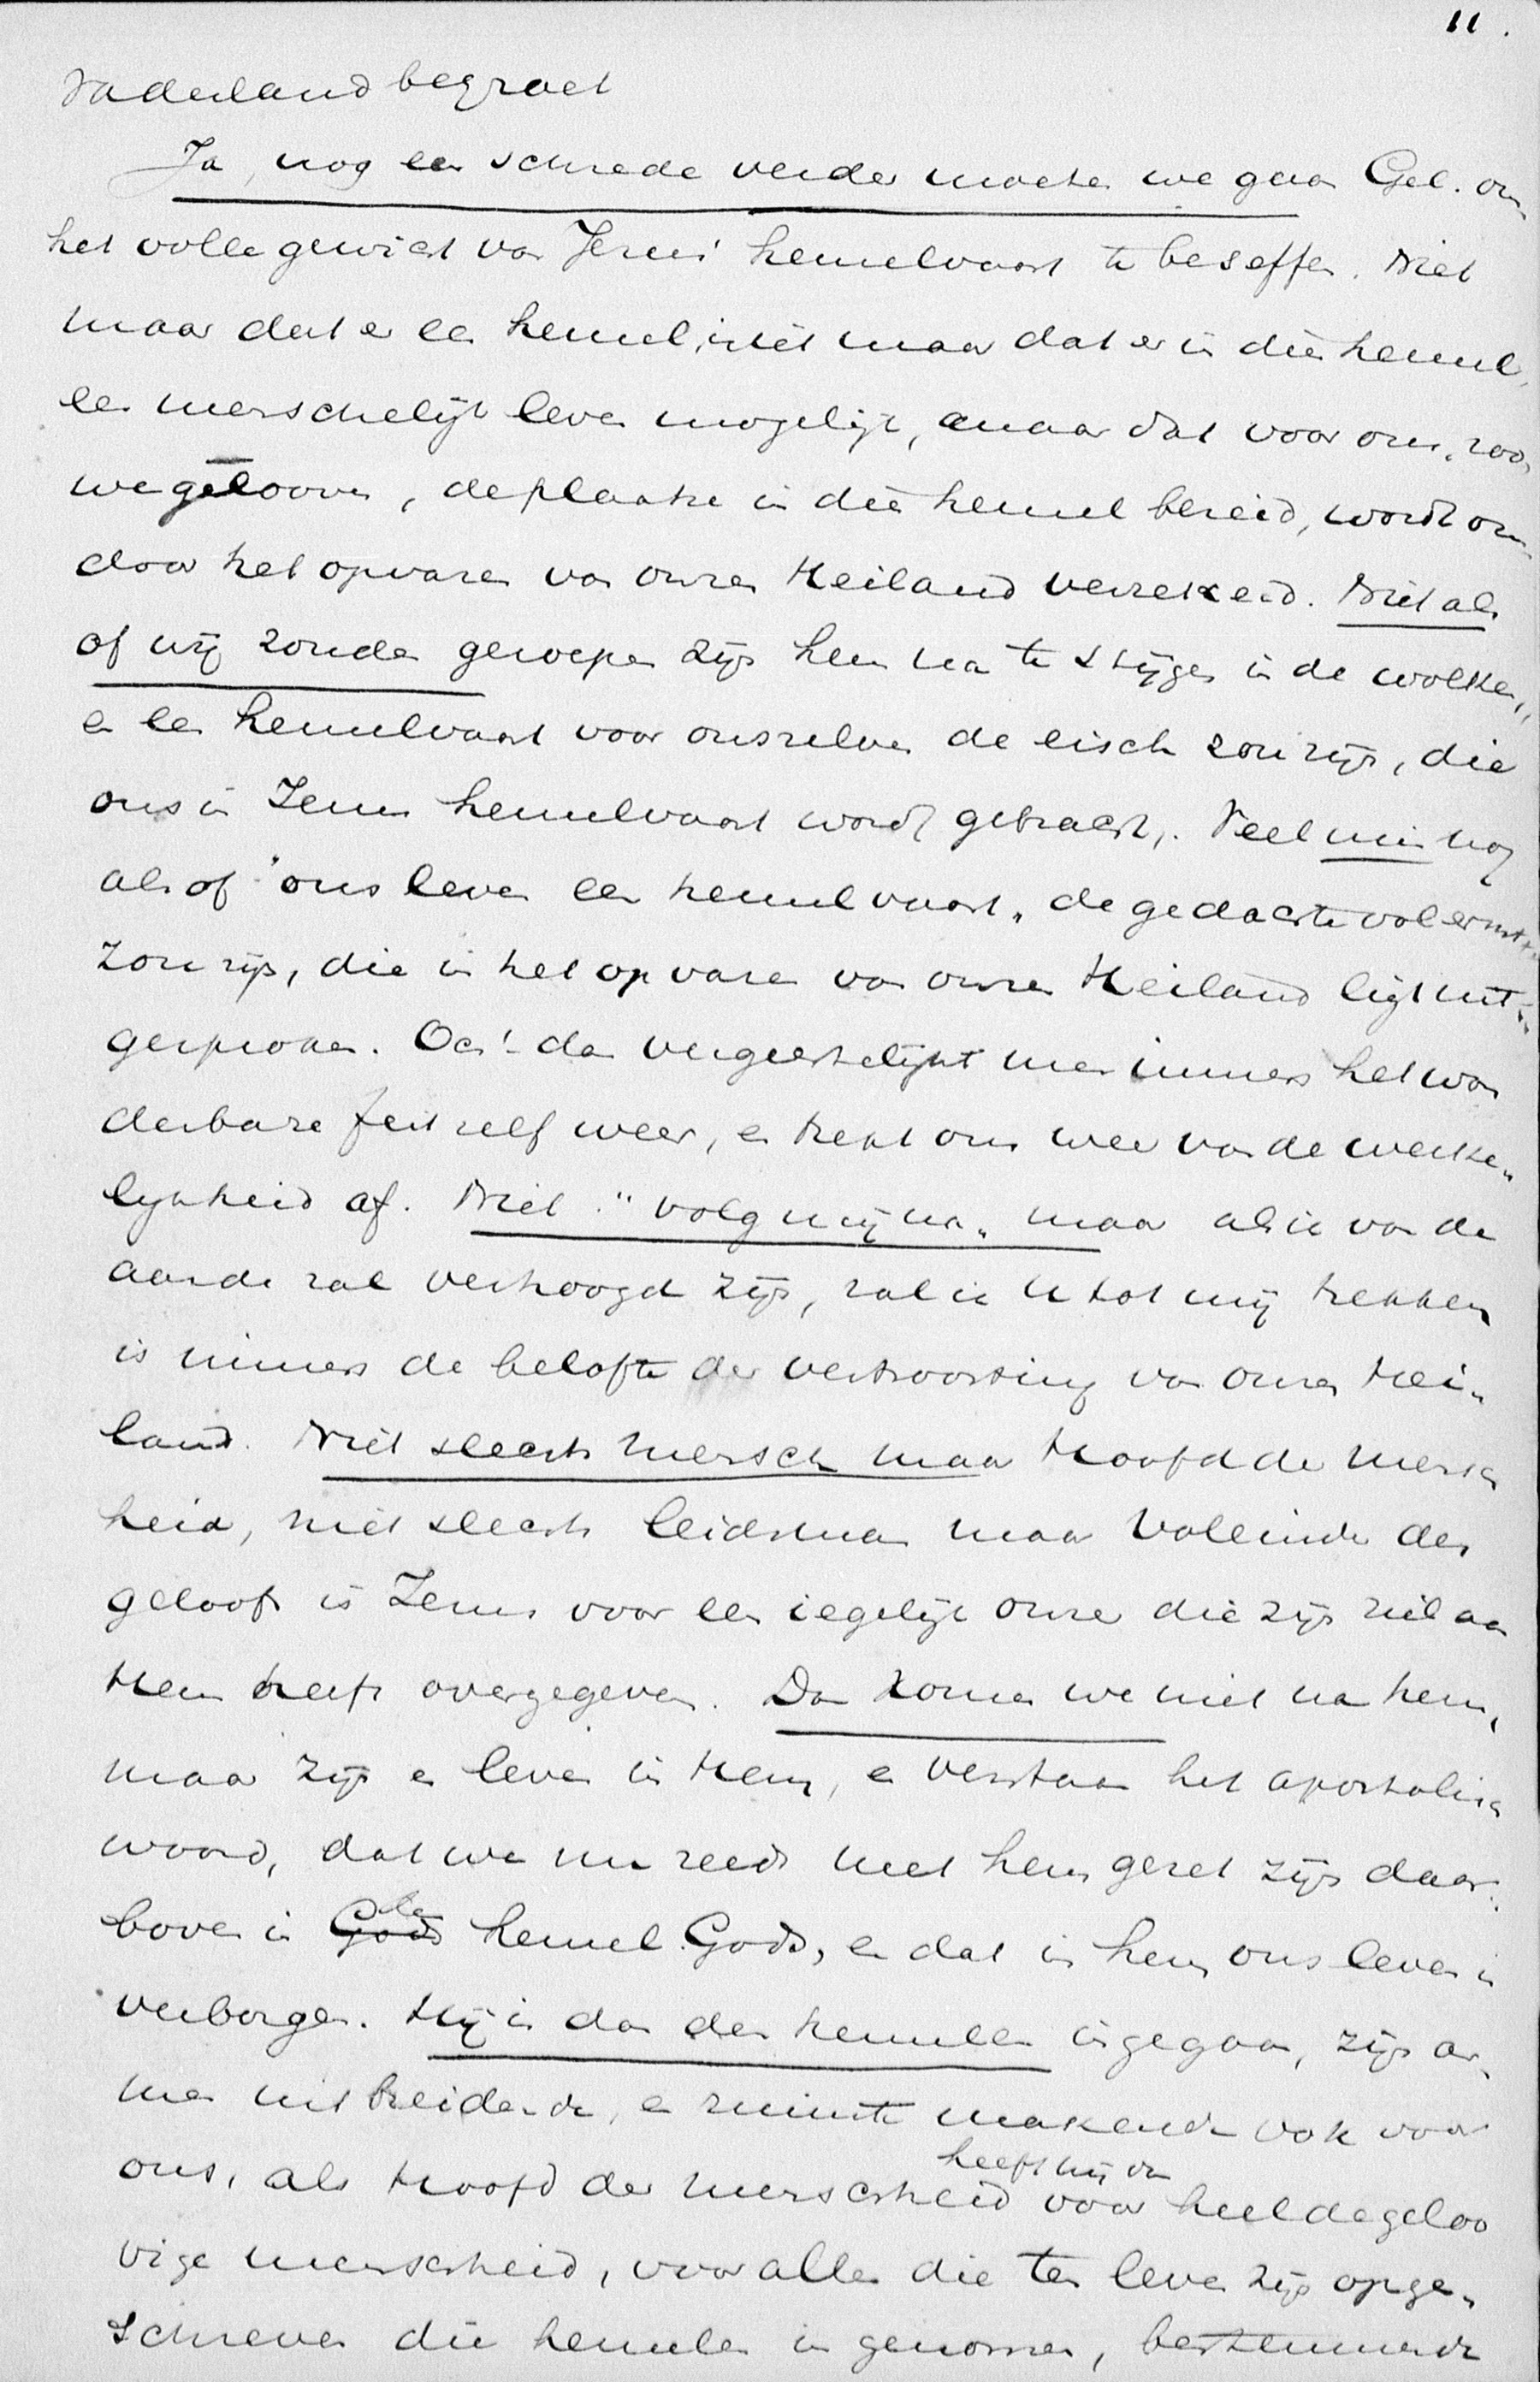 11.
Vaderland begroet
Ja, nog een schrede verder moeten we gaan Gel. om
het volle gewicht van Jezus' hemelvaart te beseffen. Niet
maar dat er een hemel, niet maar dat er in dien hemel
een menschelijk leven mogelijk, maar dat voor ons, zoo
we gelooven, de plaatse in dien hemel bereid, wordt ons
door het opvaren van onzen Heiland verzekerd. Niet als
of wij zouden geroepen zijn hem na te stijgen in de wolken,
en een hemelvaart voor onszelven de eisch zou zijn, die
ons in Jezus hemelvaart wordt gebracht. Veel min nog
alsof "ons leven een hemelvaart" de gedachte vol ernst
zou zijn, die in het opvaren van onzen Heiland ligt uit-
gesproken. Och! dan vergeestelijkt men immers het won
derbare feit zelf weer, en trekt ons weer van de werke-
lijkheid af. Niet "volg mij na" maar als ik van de
aarde zal verhoogd zijn, zal ik U tot mij trekken
is immers de belofte der vertroosting van onzen Hei-
land. Niet slechts mensch maar Hoofd der mensch
heid, niet slechts leidsman maar Voleinder des
geloofs is Jezus voor een iegelijk onzer die zijn ziel aan
Hem heeft overgegeven. Dan komen we niet na hem,
maar zijn en leven in Hem, en verstaan het apostolisch
woord, dat we nu reeds met hem gezet zijn daar-
boven in Gods den hemel Gods, en dat in hem ons leven is
verborgen. Hij is dan den hemelen ingegaan, zijn ar-
men uitbreidende, en ruimte makende ook voor
ons, als Hoofd der menschheid heeft hij den voor heel de geloo
vige menschheid, voor allen die ten leven zijn opge-
schreven die hemelen in genomen, bestemmende